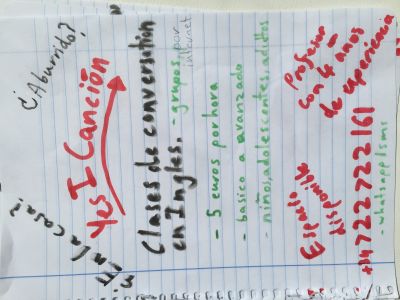 ¿Aburrido?
en la casa?
Yes I Canción
Clases de conversation
en Ingles. - grupos, por
internet
- 5 euros por hora
- basico a avanzado
- niños, adolescentes, adultos
Profesor
con 4 anos
de experiencia
Espacio
disponible
+34722722161
- whatsapp/sms